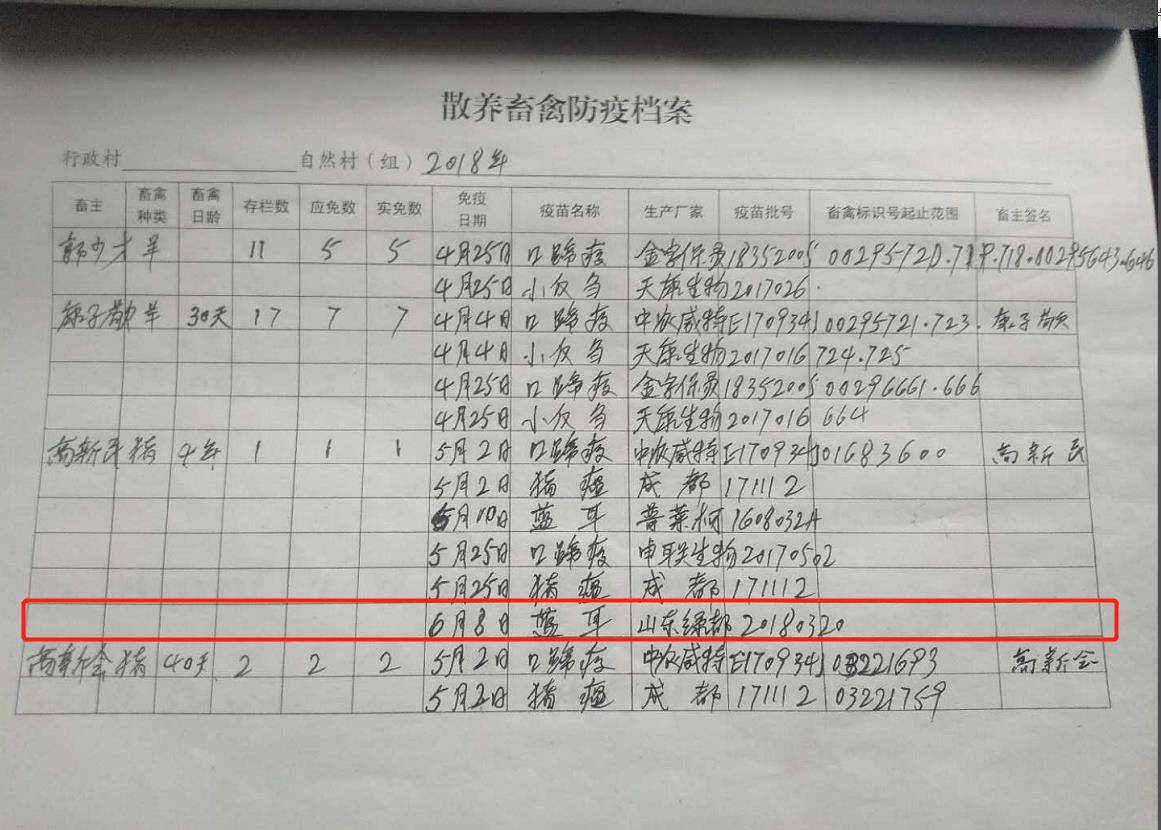 散养畜禽防疫档案
行政村 自然村（组） 2018年
畜主 畜禽种类 畜禽日龄 存栏数 应免数 实免数 免疫日期 疫苗名称 生产厂家 疫苗批号 畜禽标识号起止范围 畜主签名
郭少才 羊 11 5 5 4月25日 口蹄疫 金宇保灵 18352005
4月25日 小反刍 天康生物 2017026
子敬 羊 30天 17 7 7 4月4日 口蹄疫 中农威特 E170934J 00295721.723.
4月4日 小反刍 天康生物 2017016 724.725
4月25日 口蹄疫 金宇保灵 18352005 00296661.666
4月25日 小反刍 天康生物 2017016 664
高新民 猪 4年 1 1 1 5月2日 口蹄疫 中农威特 E170934J 01683600 高新民
5月2日 猪瘟 成都 171112
5月10日 蓝耳 普莱柯 1608032A
5月25日 口蹄疫 申联生物 20170502
5月25日 猪瘟 成都 171112
6月8日 蓝耳 山东绿都 20180320
高新会 猪 40天 2 2 2 5月2日 口蹄疫 中农威特 E170934J 03221693 高新会
5月2日 猪瘟 成都 171112 03221759